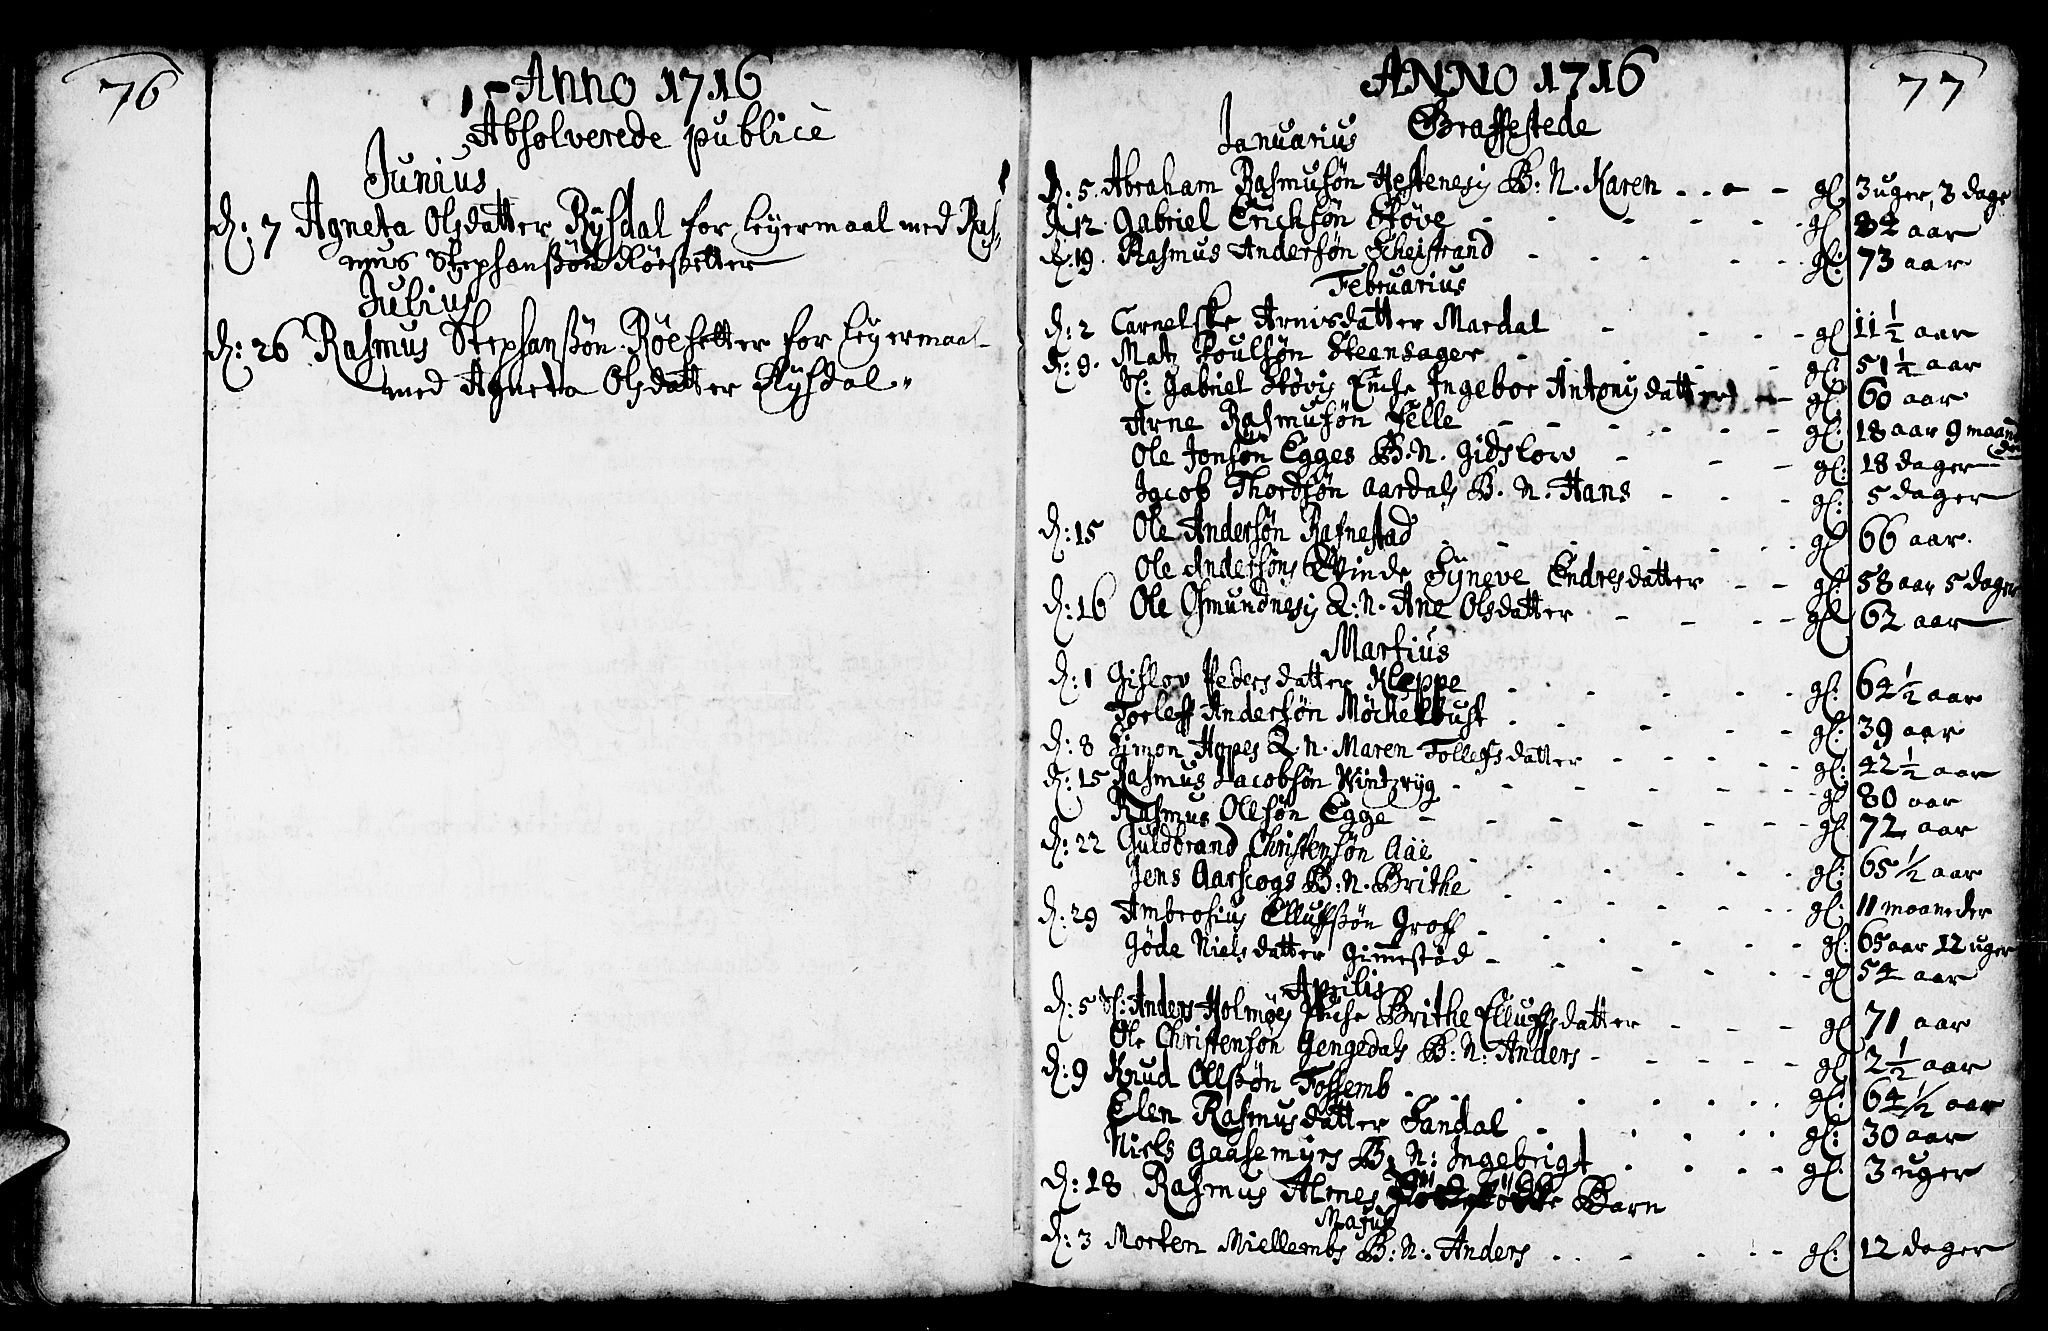 76
Anno 1716
Absolverede publicè
Junius
D: 7 Agneta Olsdatter Rysdal for Leyermaal med Ras-
mus Stephansßøn Røesetter
Julius
D: 26 Rasmus Stephansßøn Røesetter for Leyermaal
med Agneta Olsdatter Rysdal
ANNO 1716
77
Januarius Graffestede
D: 5. Abraham Rasmusøn Hestenesis B: N. Karen - - - - gl. 3 uger, 3 dage
D. 12. Gabriel Erichsøn Støve - - - - gl 82 aar
D: 19. Rasmus Andersøn Scheistrand - - - gl: 73 aar
Februarius
D: 2 Carnelske Arnisdatter Mardal - - - - gl 11 1/2 aar
D: 9. Matz Poulsøn Steensager - - - - gl: 51 1/2 aar
Sl: Gabriel Støvis Enche Ingebor Antonisdatter - gl: 60 aar
Arne Rasmusøn Felle - - - - gl: 18 aar 9 maaneder
Ole Jonsøn Egges B: N. Gidslow - - - gl: 18 dager
Jacob Thordsøn Aardals B. N. Hans - - - gl: 5 dager
D: 15 Ole Andersøn Rafnestad - - - gl 66 aar.
Ole Andersøns Qvinde Syneve Endresdatter - - gl: 58 aar 5 dager
D: 16 Ole Osmundnesis Q: N. Ane Olsdatter - - - - gl 62 aar
Martius
D: 1 Gislov Pedersdatter Kleppe - - - - gl: 64 1/2 aar
Torleff Andersøn Møchelbust - - - - gl: 39 aar
D: 8 Simon Hopes Q. N. Maren Tolleffsdatter - - - - gl: 42 1/2 aar
D: 15 Rasmus Jacobsøn Wintzryg - - - - gl 80 aar
Rasmus Olesøn Egge - - - - gl: 72 aar
D: 22 Guldbrand Christensøn Aae - - - gl: 65 1/2 aar
Jens Aarscogs B: N. Brithe - - - - gl: 11 maaneder
D: 29 Ambrosius Elluffsßøn Groff - - - - gl: 65 aar 12 uger
Gøde Nielsdatter Gimmestad - - - - gl 54 aar
Aprilis
D: 5 Sl: Anders Holmøes Enche Brithe Elluffsdatter - - - gl 71 aar
Ole Christensøn Gengedals B: N: Anders - - - - gl 2 1/2 aar
D: 9 Knud Olsßøn Fossemb - - - - gl: 64 1/2 aar
Elen Rasmusdatter Sandal - - - - gl: 30 aar
Niels Gaasemyrs B. N: Ingebrigt - - - - gl: 3 uger
D: 18 Rasmus Almes Barn
Majus
D: 3 Morten Miellembs B: N: Anders - - - - gl: 12 dager